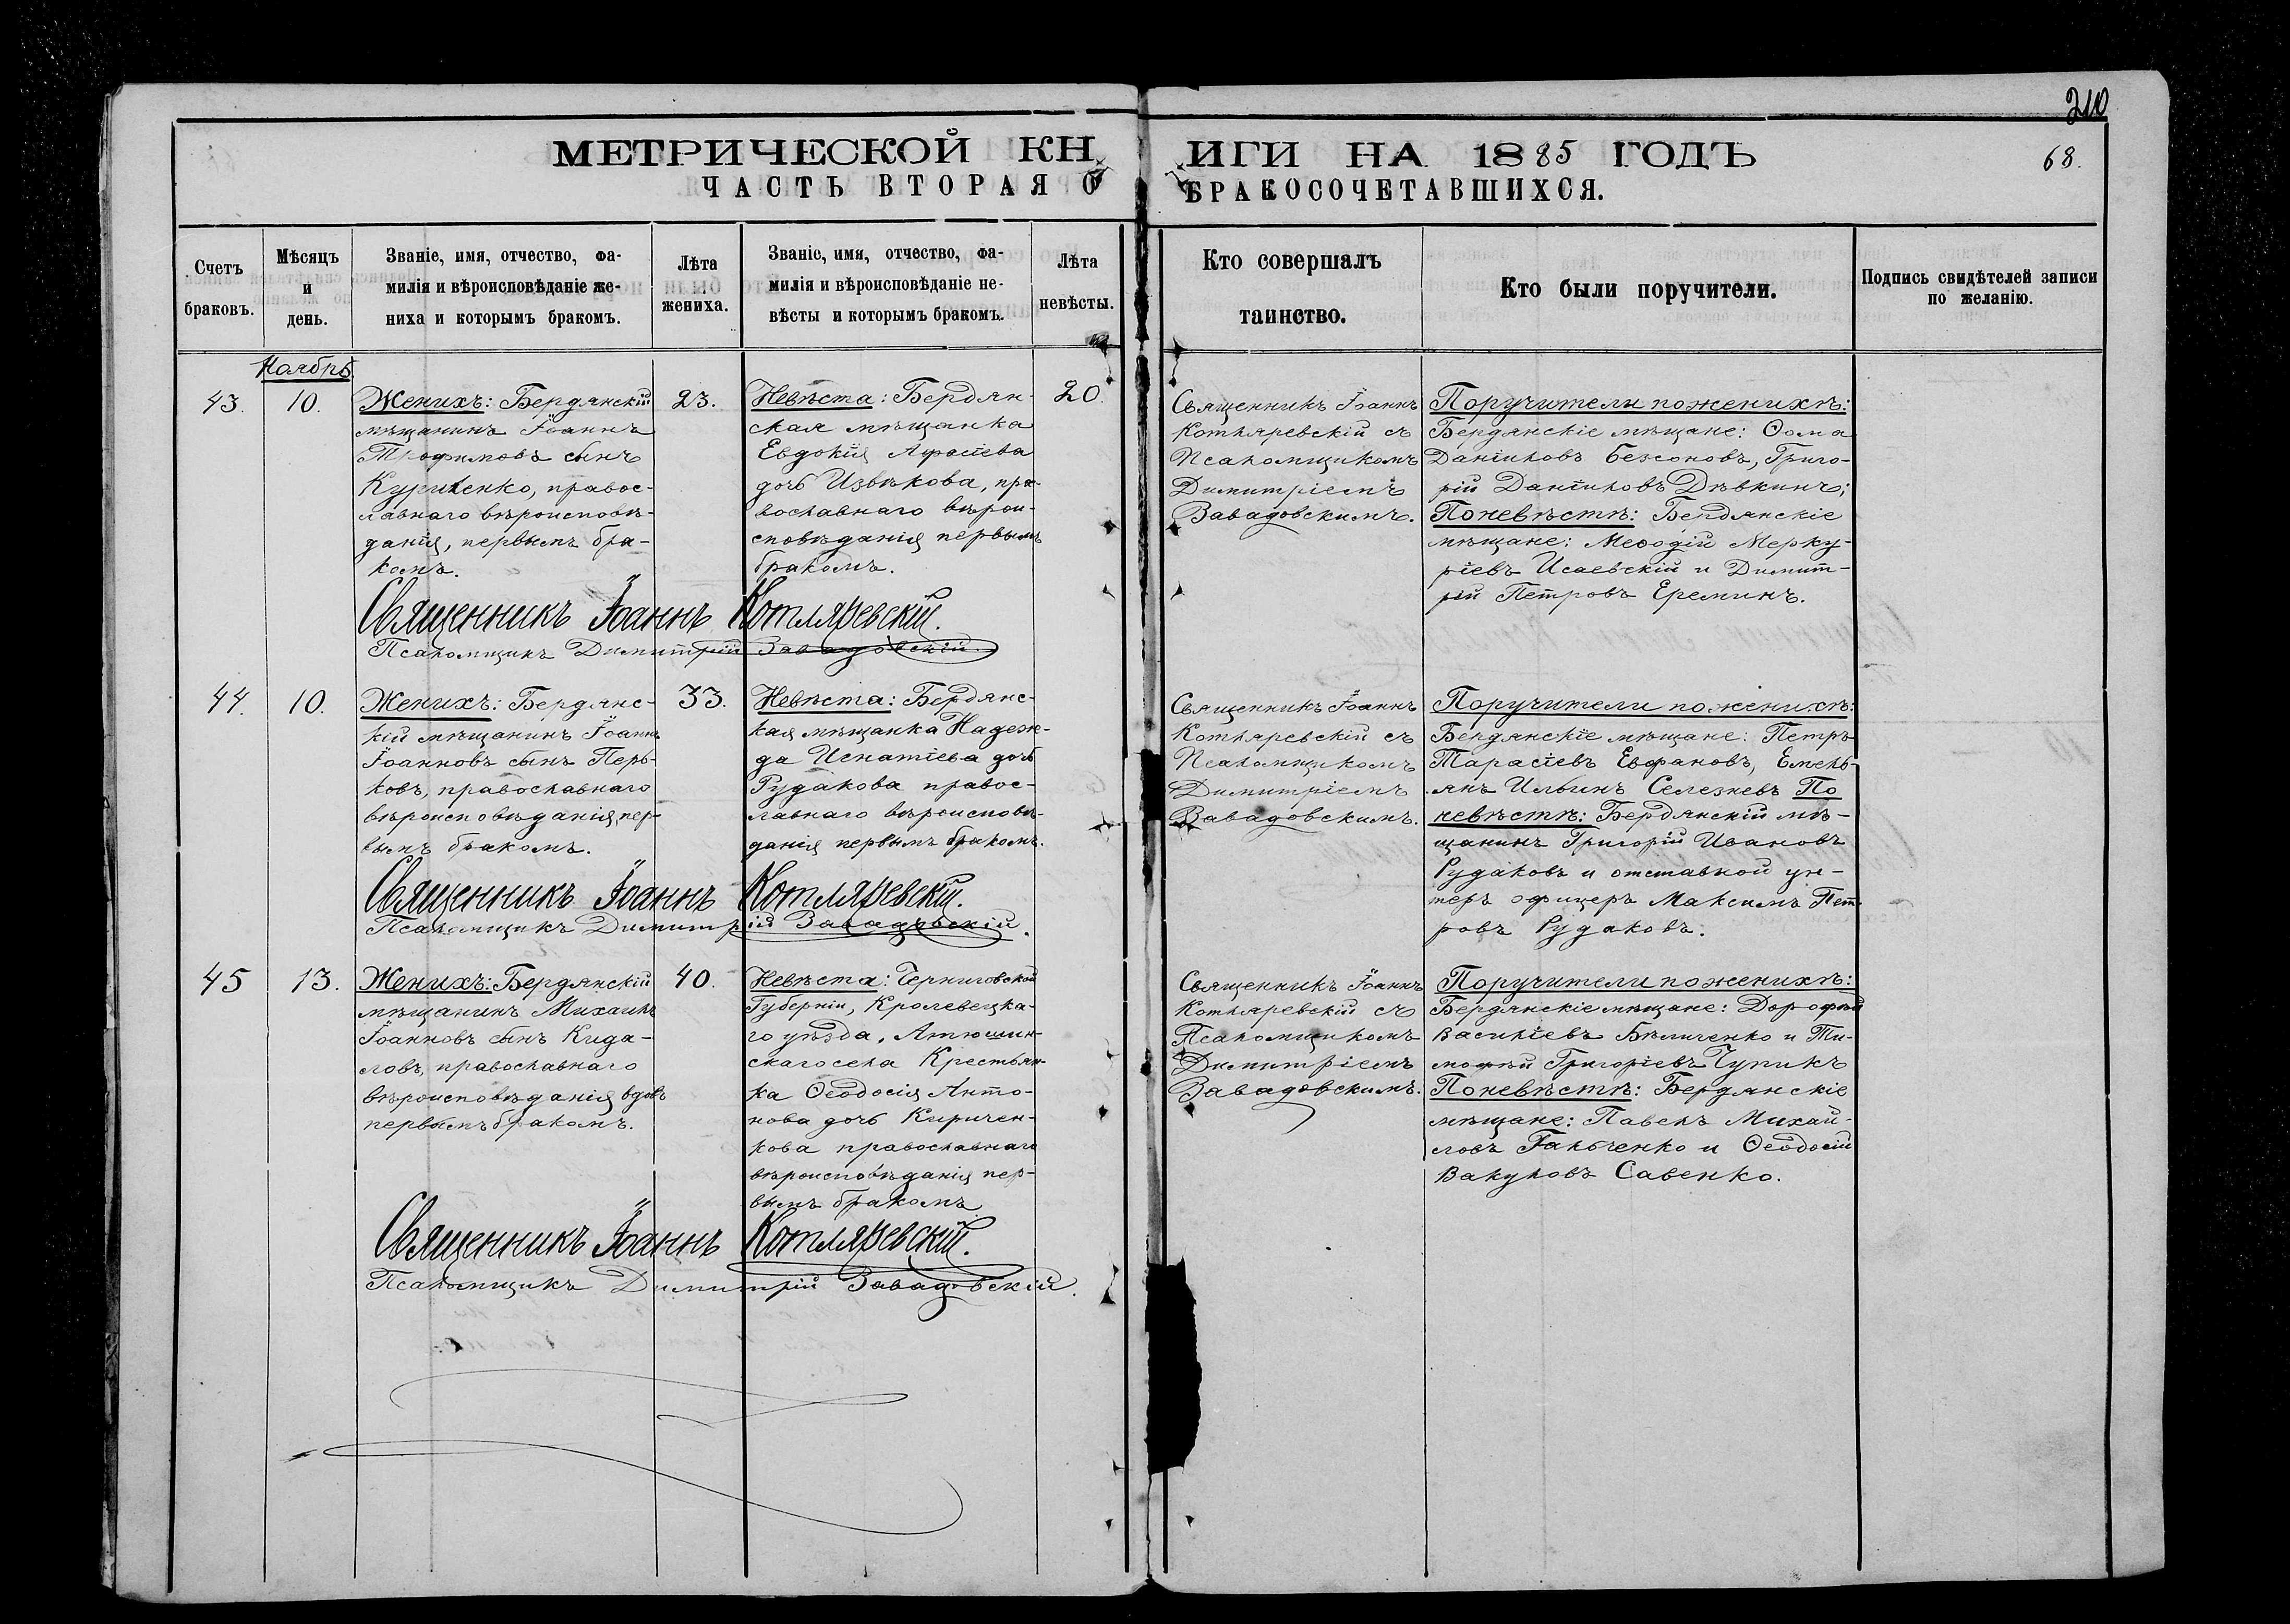 210
МЕТРИЧЕСКОЙ КНИГИ НА 1885 ГОДЪ
68.
ЧАСТЬ ВТОРАЯ О БРАКОСОЧЕТАВШИХСЯ.
Счетъ браковъ.
Мѣсяцъ и день.
Званіе, имя, отчество, фа-
милія и вѣроисповѣданіе же-
ниха и которымъ бракомъ.
Лѣта жениха.
Званіе, имя, отчество, фа-
милія и вѣроисповѣданіе не-
вѣсты и которымъ бракомъ.
Лѣта невѣсты.
Кто совершалъ
таинство.
Кто были поручители.
Подпись свидѣтелей записи
по желанію.
Ноябрь
43.
10.
Женихъ: Бердянскій
мѣщанинъ Іоаннъ
Трофимовъ сынъ
Куриленко, правос-
лавнаго вѣроисповѣ-
данія, первымъ бра-
комъ.
23.
Невѣста: Бердян-
ская мѣщанка
Евдокія
дочь Извѣкова, пра-
вославнаго вѣрои-
сповѣданія первымъ
бракомъ.
20.
Священникъ Іоаннъ
Котляревскій съ
Псаломщикомъ
Димитріемъ
Завадовскимъ.
Поручители по женихѣ:
Бердянскіе мѣщане: Ѳома
Даніиловъ Безсоновъ, Григо-
рій Даніиловъ Дѣвкинъ;
По невѣстѣ: Бердянскіе
мѣщане: Меѳодій Мерку-
ріевъ Исаевскій и Димит-
рій Петровъ Ереминъ.
Священникъ Іоаннъ Котляревскій.
Псаломщикъ Димитрій Завадовскій.
44.
10.
Женихъ: Бердянс-
кій мѣщанинъ Іоаннъ
Іоанновъ сынъ Перь-
ковъ, православнаго
вѣроисповѣданія, пер-
вымъ бракомъ.
33.
Невѣста: Бердянс-
кая мѣщанка Надеж-
да Игнатіева дочь
Рудакова правос-
лавнаго вѣроисповѣ-
данія первымъ бракомъ.
Священникъ Іоаннъ
Котляревскій съ
Псаломщикомъ
Димитріемъ
Завадовскимъ.
Поручители по женихѣ:
Бердянскіе мѣщане: Петръ
Тарасіевъ Евфановъ, Емель-
янъ Ильинъ Селезневъ По
невѣстѣ: Бердянскій мѣ-
щанинъ Григорій Ивановъ
Рудаковъ и отставной ун-
теръ офицеръ Максимъ Пет-
ровъ Рудаковъ.
Священникъ Іоаннъ Котляревскій.
Псаломщикъ Димитрій Завадовскій.
45
13.
Женихъ: Бердянскій
мѣщанинъ Михаилъ
Іоанновъ сынъ Кида-
ловъ, православнаго
вѣроисповѣданія вдовъ
первымъ бракомъ.
40.
Невѣста: Черниговской
Губерніи, Кролевецка-
го уѣзда, Атюшин-
скаго села Крестьян-
ка Ѳеодосія Анто-
нова дочь Киричен-
кова православнаго
вѣроисповѣданія пер-
вымъ бракомъ
Священникъ Іоаннъ
Котляревскій съ
Псаломщикомъ
Димитріемъ
Завадовскимъ.
Поручители по женихѣ:
Бердянскіе мѣщане: Дорофей
Василіевъ Бѣличенко и Ти-
моѳей Григоріевъ Чупикъ
По невѣстѣ: Бердянскіе
мѣщане: Павелъ Михай-
ловъ Гальченко и Ѳеодосій
Вакуловъ Савенко.
Священникъ Іоаннъ Котляревскій.
Псаломщикъ Димитрій Завадовскій.